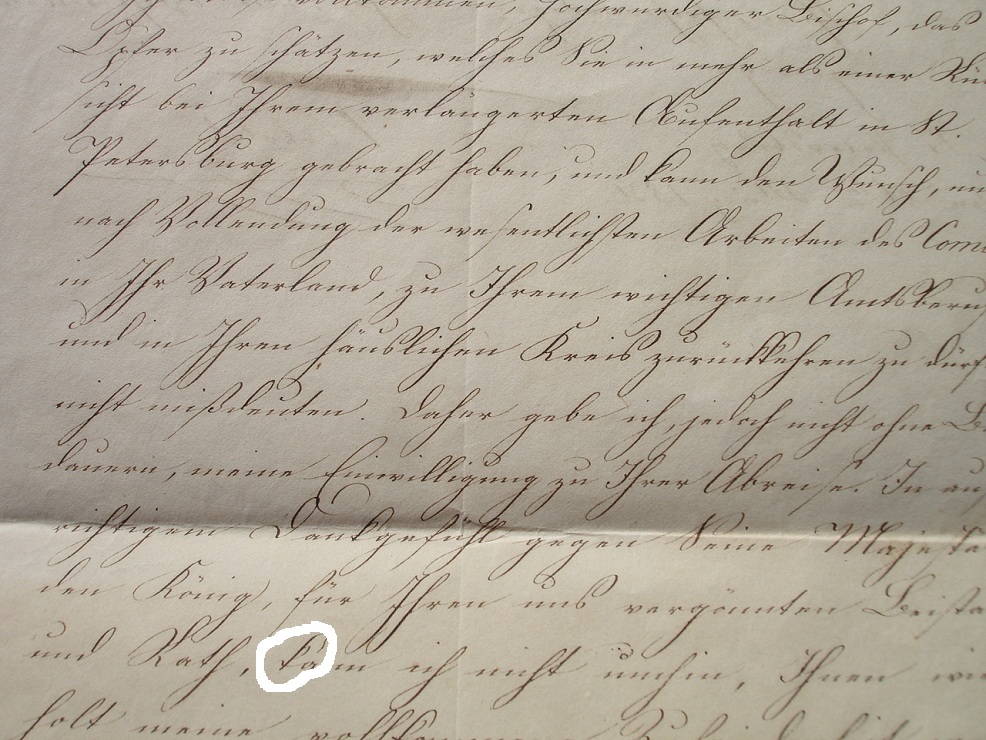 vollkommen, hochwürdiger Bischof, das
Opfer zu schätzen, welches Sie in mehr als einer Rü
sicht bei Ihrem verlängerten Aufenthalt in St.
Petersburg gebracht haben, und kann den Wunsch, nu
nach Vollendung der wesentlichsten Arbeiten des Com
in Ihr Vaterland, zu Ihrem wichtigen Amtsberuf
und in Ihren häuslichen Kreis zurückkehren zu dürf
nicht mißdeuten. Daher gebe ich, jedoch nicht ohne Be
dauern, meine Einwilligung zu Ihrer Abreise. In auf
richtigem Dankgefühl gegen Seine Majestä
den König, für Ihren uns vergönnten Beista
und Rath, kann ich nicht umhin, Ihnen wie
holt meine